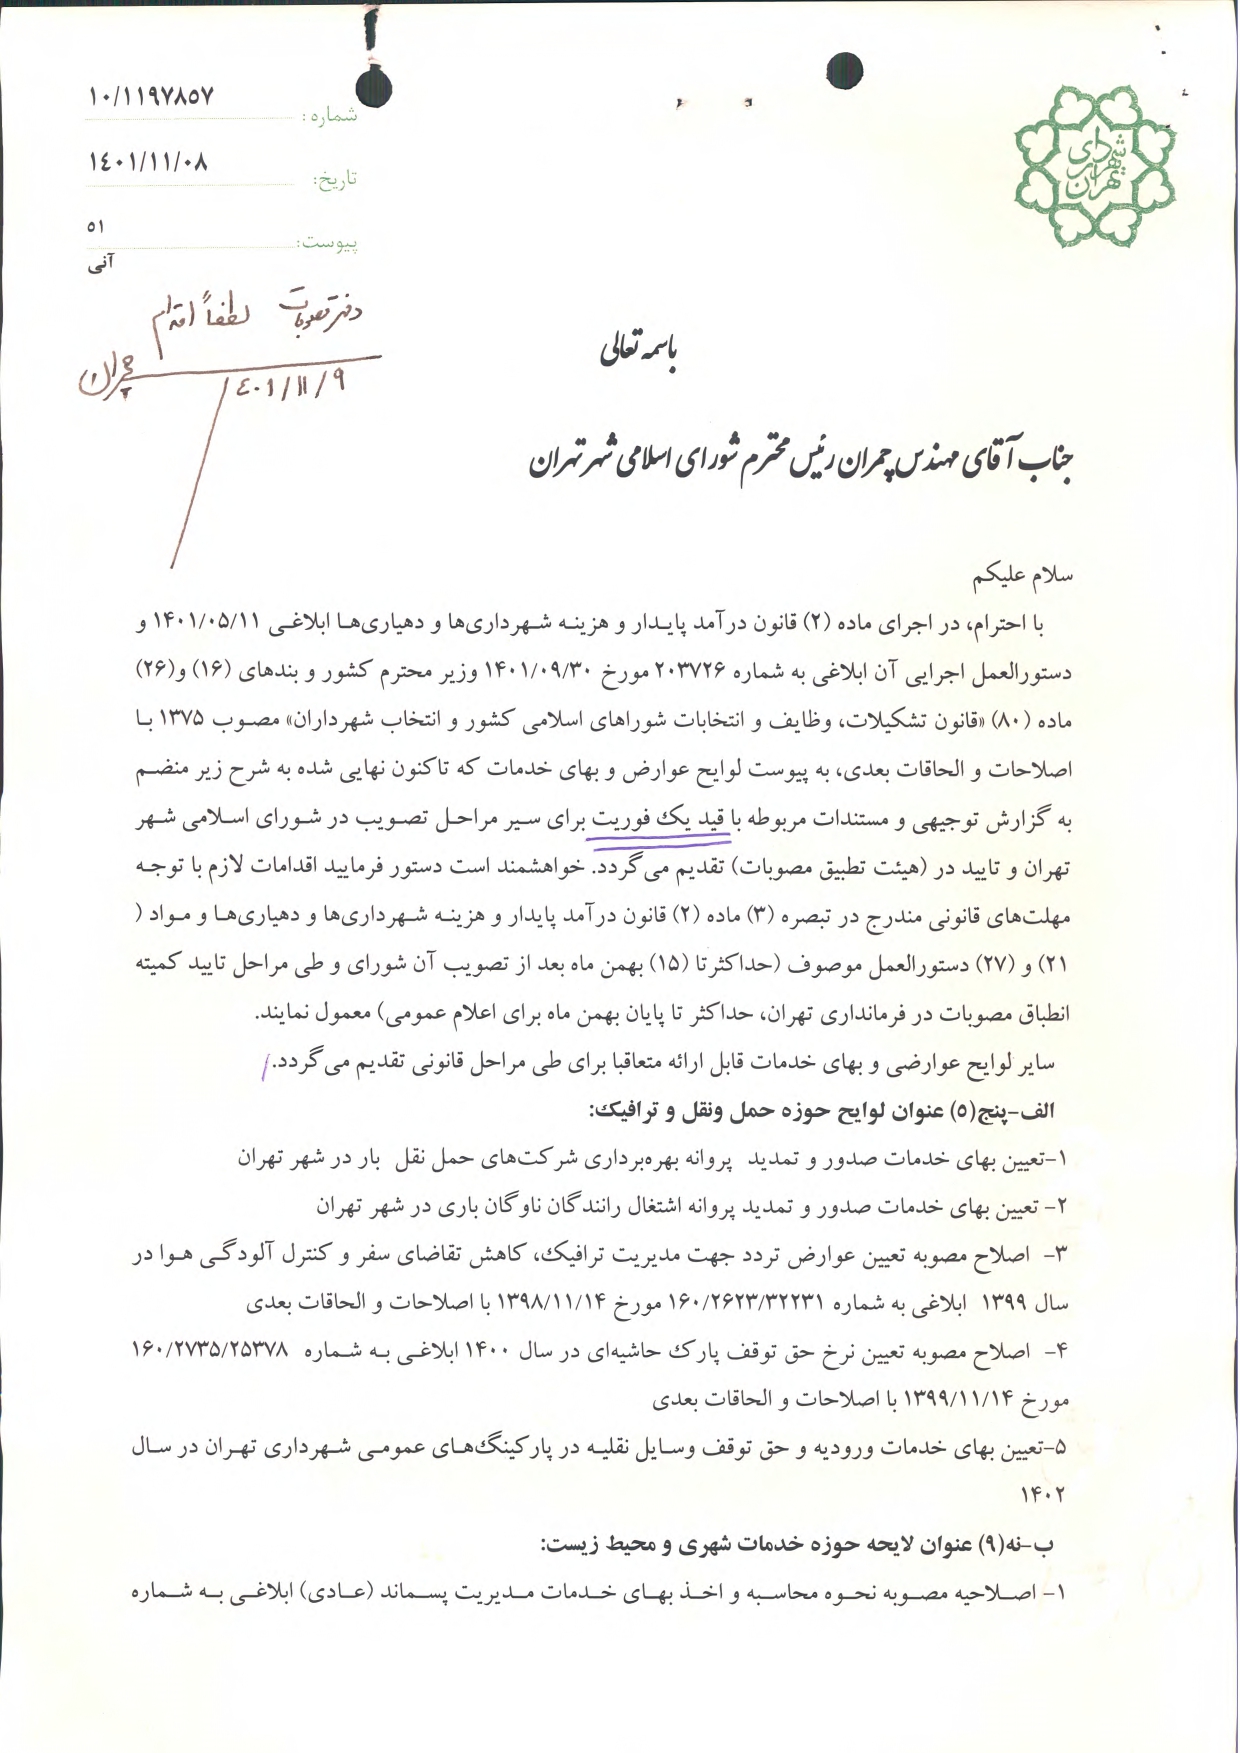 شهرداری تهران
۱۰/۱۱۹۷۸۵۷
شماره:
۱٤۰۱/۱۱/۰۸
تاریخ:
۵۱
پیوست:
آنی
دفتر مصوبات لطفاً اقدام
چمران
۱٤۰۱/۱۱/۹
باسمه تعالی
جناب آقای مهندس چمران رئیس محترم شورای اسلامی شهر تهران
سلام علیکم
با احترام، در اجرای ماده (۲) قانون درآمد پایدار و هزینه شهرداری‌ها و دهیاری‌ها ابلاغی ۱۴۰۱/۰۵/۱۱ و
دستورالعمل اجرایی آن ابلاغی به شماره ۲۰۳۷۲۶ مورخ ۱۴۰۱/۰۹/۳۰ وزیر محترم کشور و بندهای (۱۶) و(۲۶)
ماده (۸۰) «قانون تشکیلات، وظایف و انتخابات شوراهای اسلامی کشور و انتخاب شهرداران» مصوب ۱۳۷۵ با
اصلاحات و الحاقات بعدی، به پیوست لوایح عوارض و بهای خدمات که تاکنون نهایی شده به شرح زیر منضم
به گزارش توجیهی و مستندات مربوطه با قید یک فوریت برای سیر مراحل تصویب در شورای اسلامی شهر
تهران و تایید در (هیئت تطبیق مصوبات) تقدیم می‌گردد. خواهشمند است دستور فرمایید اقدامات لازم با توجه
مهلت‌های قانونی مندرج در تبصره (۳) ماده (۲) قانون درآمد پایدار و هزینه شهرداری‌ها و دهیاری‌ها و مواد (
۲۱) و (۲۷) دستورالعمل موصوف (حداکثرتا (۱۵) بهمن ماه بعد از تصویب آن شورای و طی مراحل تایید کمیته
انطباق مصوبات در فرمانداری تهران، حداکثر تا پایان بهمن ماه برای اعلام عمومی) معمول نمایند.
سایر لوایح عوارضی و بهای خدمات قابل ارائه متعاقبا برای طی مراحل قانونی تقدیم می‌گردد./
الف-پنج(۵) عنوان لوایح حوزه حمل ونقل و ترافیک:
۱-تعیین بهای خدمات صدور و تمدید پروانه بهره‌برداری شرکت‌های حمل نقل بار در شهر تهران
۲- تعیین بهای خدمات صدور و تمدید پروانه اشتغال رانندگان ناوگان باری در شهر تهران
۳- اصلاح مصوبه تعیین عوارض تردد جهت مدیریت ترافیک، کاهش تقاضای سفر و کنترل آلودگی هوا در
سال ۱۳۹۹ ابلاغی به شماره ۱۶۰/۲۶۲۳/۳۲۲۳۱ مورخ ۱۳۹۸/۱۱/۱۴ با اصلاحات و الحاقات بعدی
۴- اصلاح مصوبه تعیین نرخ حق توقف پارک حاشیه‌ای در سال ۱۴۰۰ ابلاغی به شماره ۱۶۰/۲۷۳۵/۲۵۳۷۸
مورخ ۱۳۹۹/۱۱/۱۴ با اصلاحات و الحاقات بعدی
۵-تعیین بهای خدمات ورودیه و حق توقف وسایل نقلیه در پارکینگ‌های عمومی شهرداری تهران در سال
۱۴۰۲
ب-نه(۹) عنوان لایحه حوزه خدمات شهری و محیط زیست:
۱- اصلاحیه مصوبه نحوه محاسبه و اخذ بهای خدمات مدیریت پسماند (عادی) ابلاغی به شماره